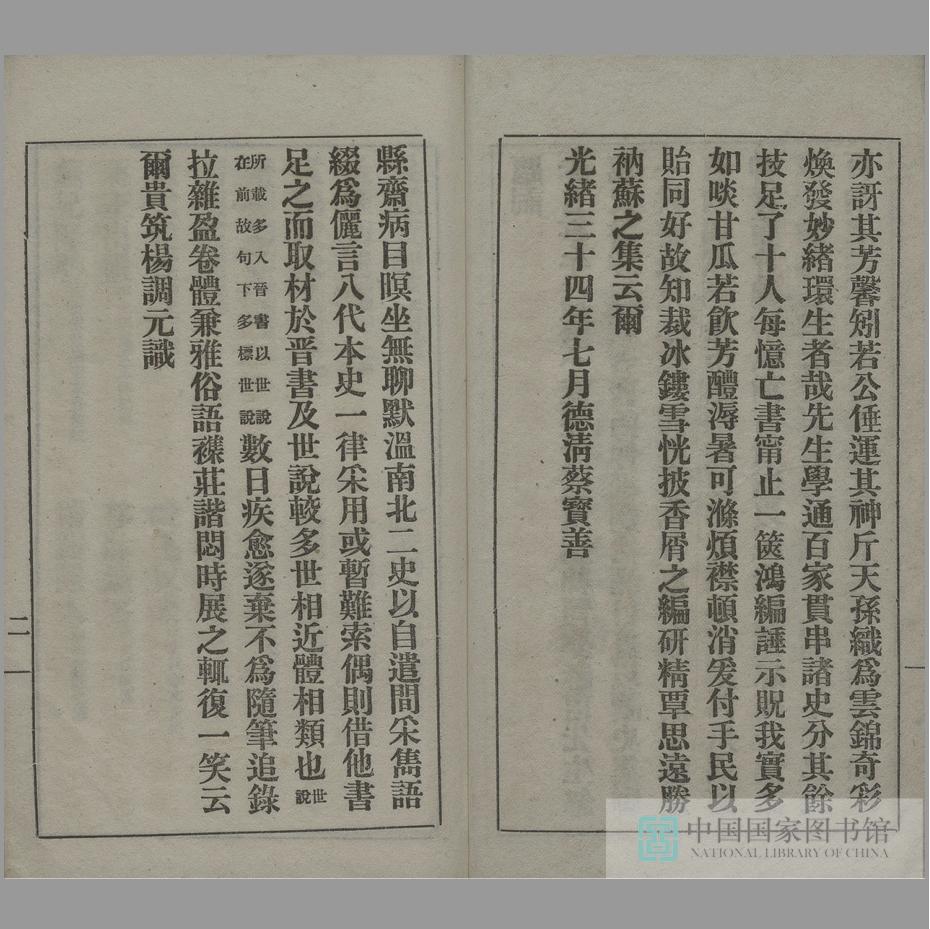 亦訝其芳馨矧若公倕運其神斤天孫織爲雲錦奇彩
煥發妙緒環生者哉先生學通百家貫串諸史分其餘
技足了十人每憶亡書甯止一篋鴻編諈示貺我實多
如啖甘瓜若飮芳醴溽暑可滌煩襟頓消爰付手民以
貽同好故知裁冰鏤雪恍披香屑之編硏精覃思遠勝
衲蘇之集云爾
光緒三十四年七月德淸蔡寳善
縣齋病目暝坐無聊默溫南北二史以自遣間采雋語
綴爲儷言八代本史一律采用或暫難索偶則借他書
足之而取材於晋書及世說較多世相近體相類也世說
所載多入晉書以世說在前故句下多標世說數日疾愈遂棄不爲隨筆追錄
拉雜盈卷體兼雅俗語襍莊諧悶時展之輒復一笑云
爾貴筑楊調元識
二
中国国家图书馆
NATIONAL LIBRARY OF CHINA